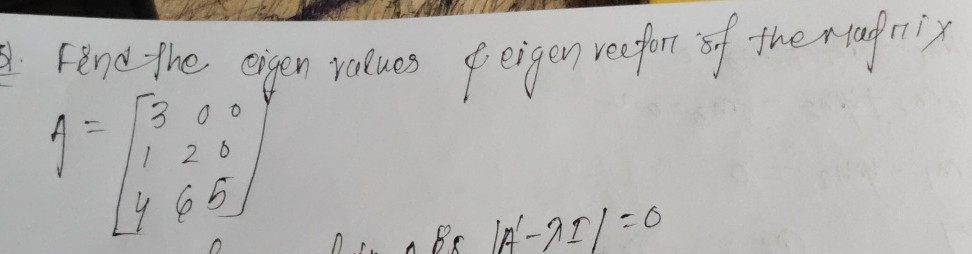 Q. Find the eigen values & eigen vector of the Matrix
A = [3 0 0
1 2 0
4 6 5]
|A - λI| = 0